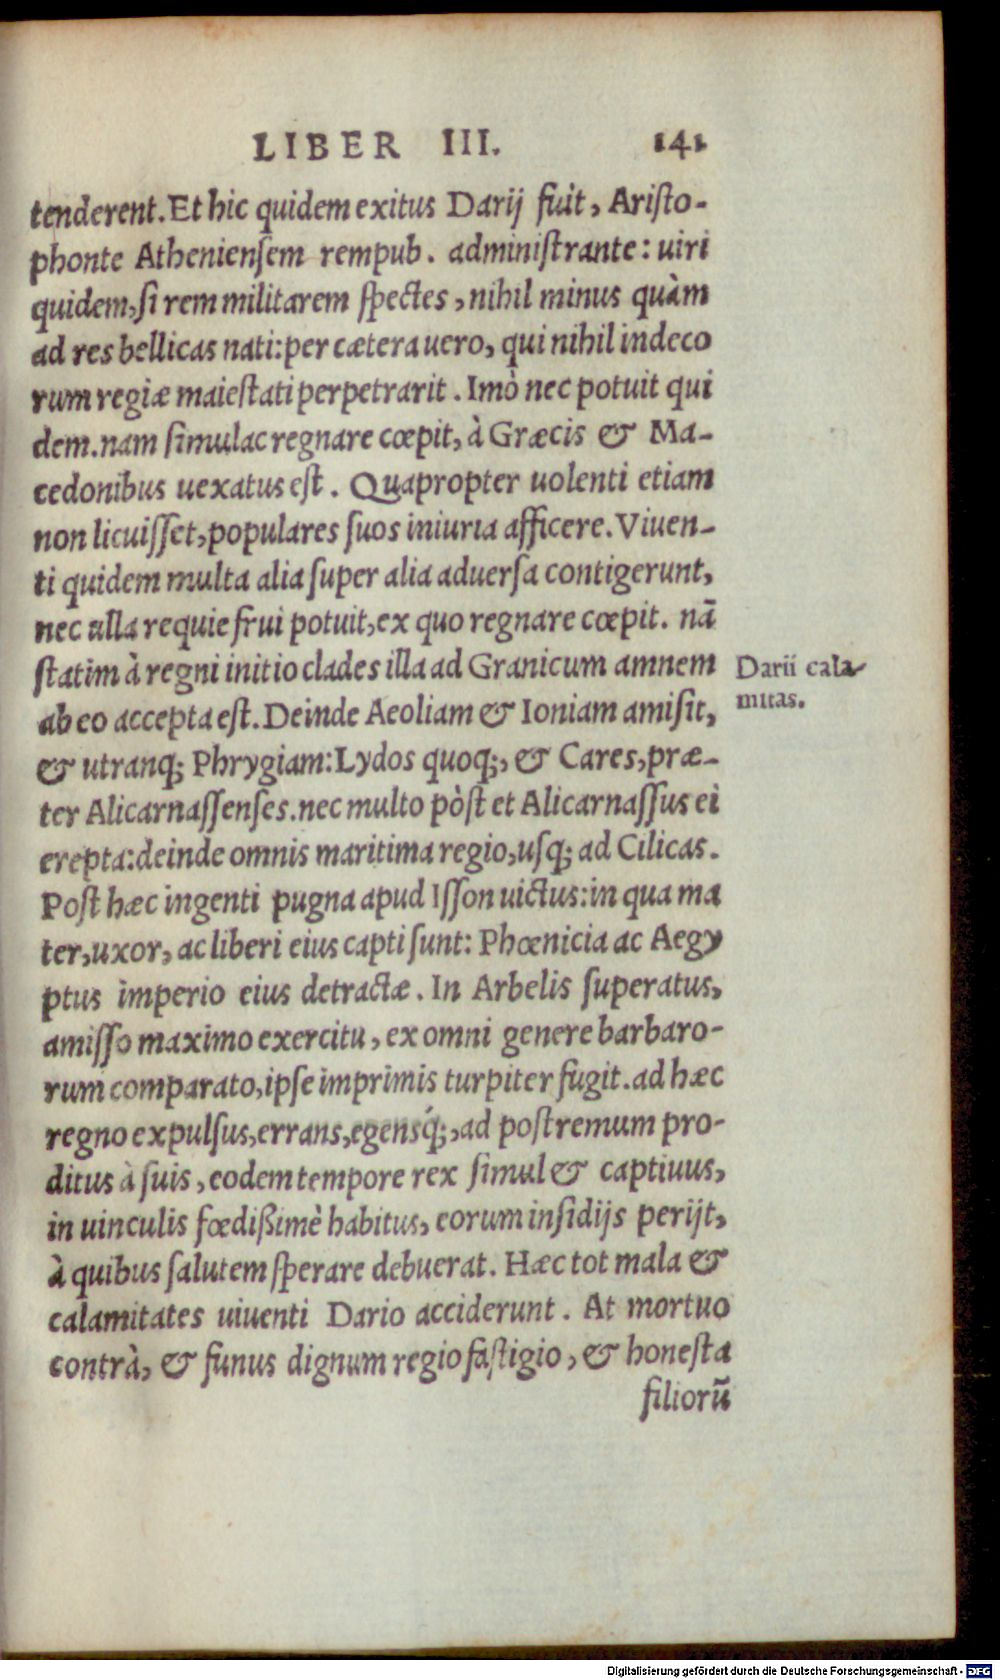 LIBER III. 141
tenderent. Et hic quidem exitus Darij fuit, Aristo-
phonte Atheniensem rempub. administrante: uiri
quidem, si rem militarem spectes, nihil minus quàm
ad res bellicas nati: per cætera uero, qui nihil indeco
rum regiæ maiestati perpetrarit. Imò nec potuit qui
dem. nam simulac regnare cœpit, à Græcis & Ma-
cedonibus uexatus est. Quapropter uolenti etiam
non licuisset, populares suos iniuria afficere. Viuen-
ti quidem multa alia super alia aduersa contigerunt,
nec ulla requie frui potuit, ex quo regnare cœpit. nã
statim à regni initio clades illa ad Granicum amnem
Darii cala-
mitas.
ab eo accepta est. Deinde Aeoliam & Ioniam amisit,
& utranq; Phrygiam: Lydos quoq;, & Cares, præ-
ter Alicarnassenses. nec multo pòst et Alicarnassus ei
erepta: deinde omnis maritima regio, usq; ad Cilicas.
Post hæc ingenti pugna apud Isson uictus: in qua ma
ter, uxor, ac liberi eius capti sunt: Phœnicia ac Aegy
ptus imperio eius detractæ. In Arbelis superatus,
amisso maximo exercitu, ex omni genere barbaro-
rum comparato, ipse imprimis turpiter fugit. ad hæc
regno expulsus, errans, egensq́;, ad postremum pro-
ditus à suis, eodem tempore rex simul & captiuus,
in uinculis fœdißimè habitus, eorum insidijs perijt,
à quibus salutem sperare debuerat. Hæc tot mala &
calamitates uiuenti Dario acciderunt. At mortuo
contrà, & funus dignum regio fastigio, & honesta
filiorũ
Digitalisierung gefördert durch die Deutsche Forschungsgemeinschaft - DFG